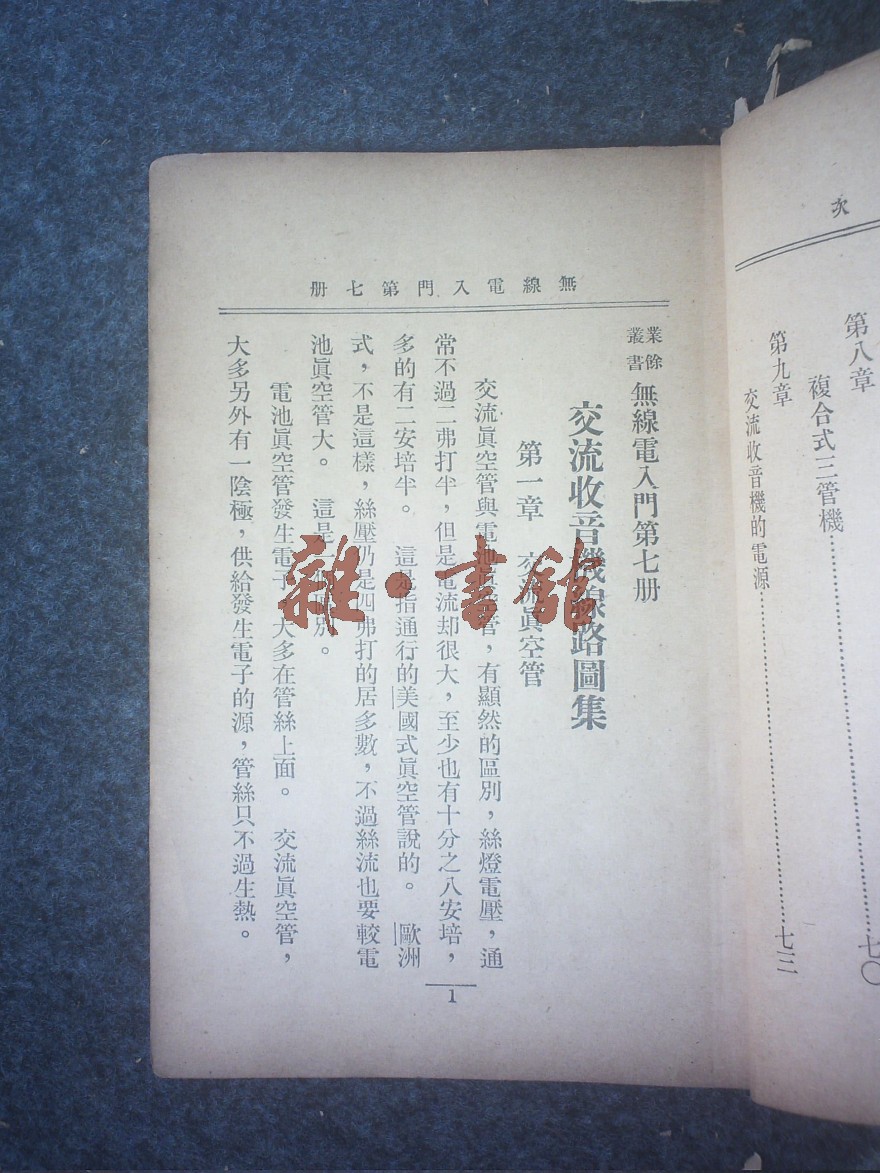 次
第八章
複合式三管機……七〇
第九章
交流收音機的電源……七三
無線電入門第七册
業餘
叢書
無線電入門第七册
交流收音機線路圖集
第一章 交流眞空管
交流眞空管與電池眞空管，有顯然的區別，絲燈電壓，通
常不過二弗打半，但是電流却很大，至少也有十分之八安培，
多的有二安培半。 這是指通行的美國式眞空管說的。 歐洲
式，不是這樣，絲壓仍是四弗打的居多數，不過絲流也要較電
池眞空管大。 這是一個區別。
電池眞空管發生電子，大多在管絲上面。 交流眞空管，
大多另外有一陰極，供給發生電子的源，管絲只不過生熱。
1
雜·書館